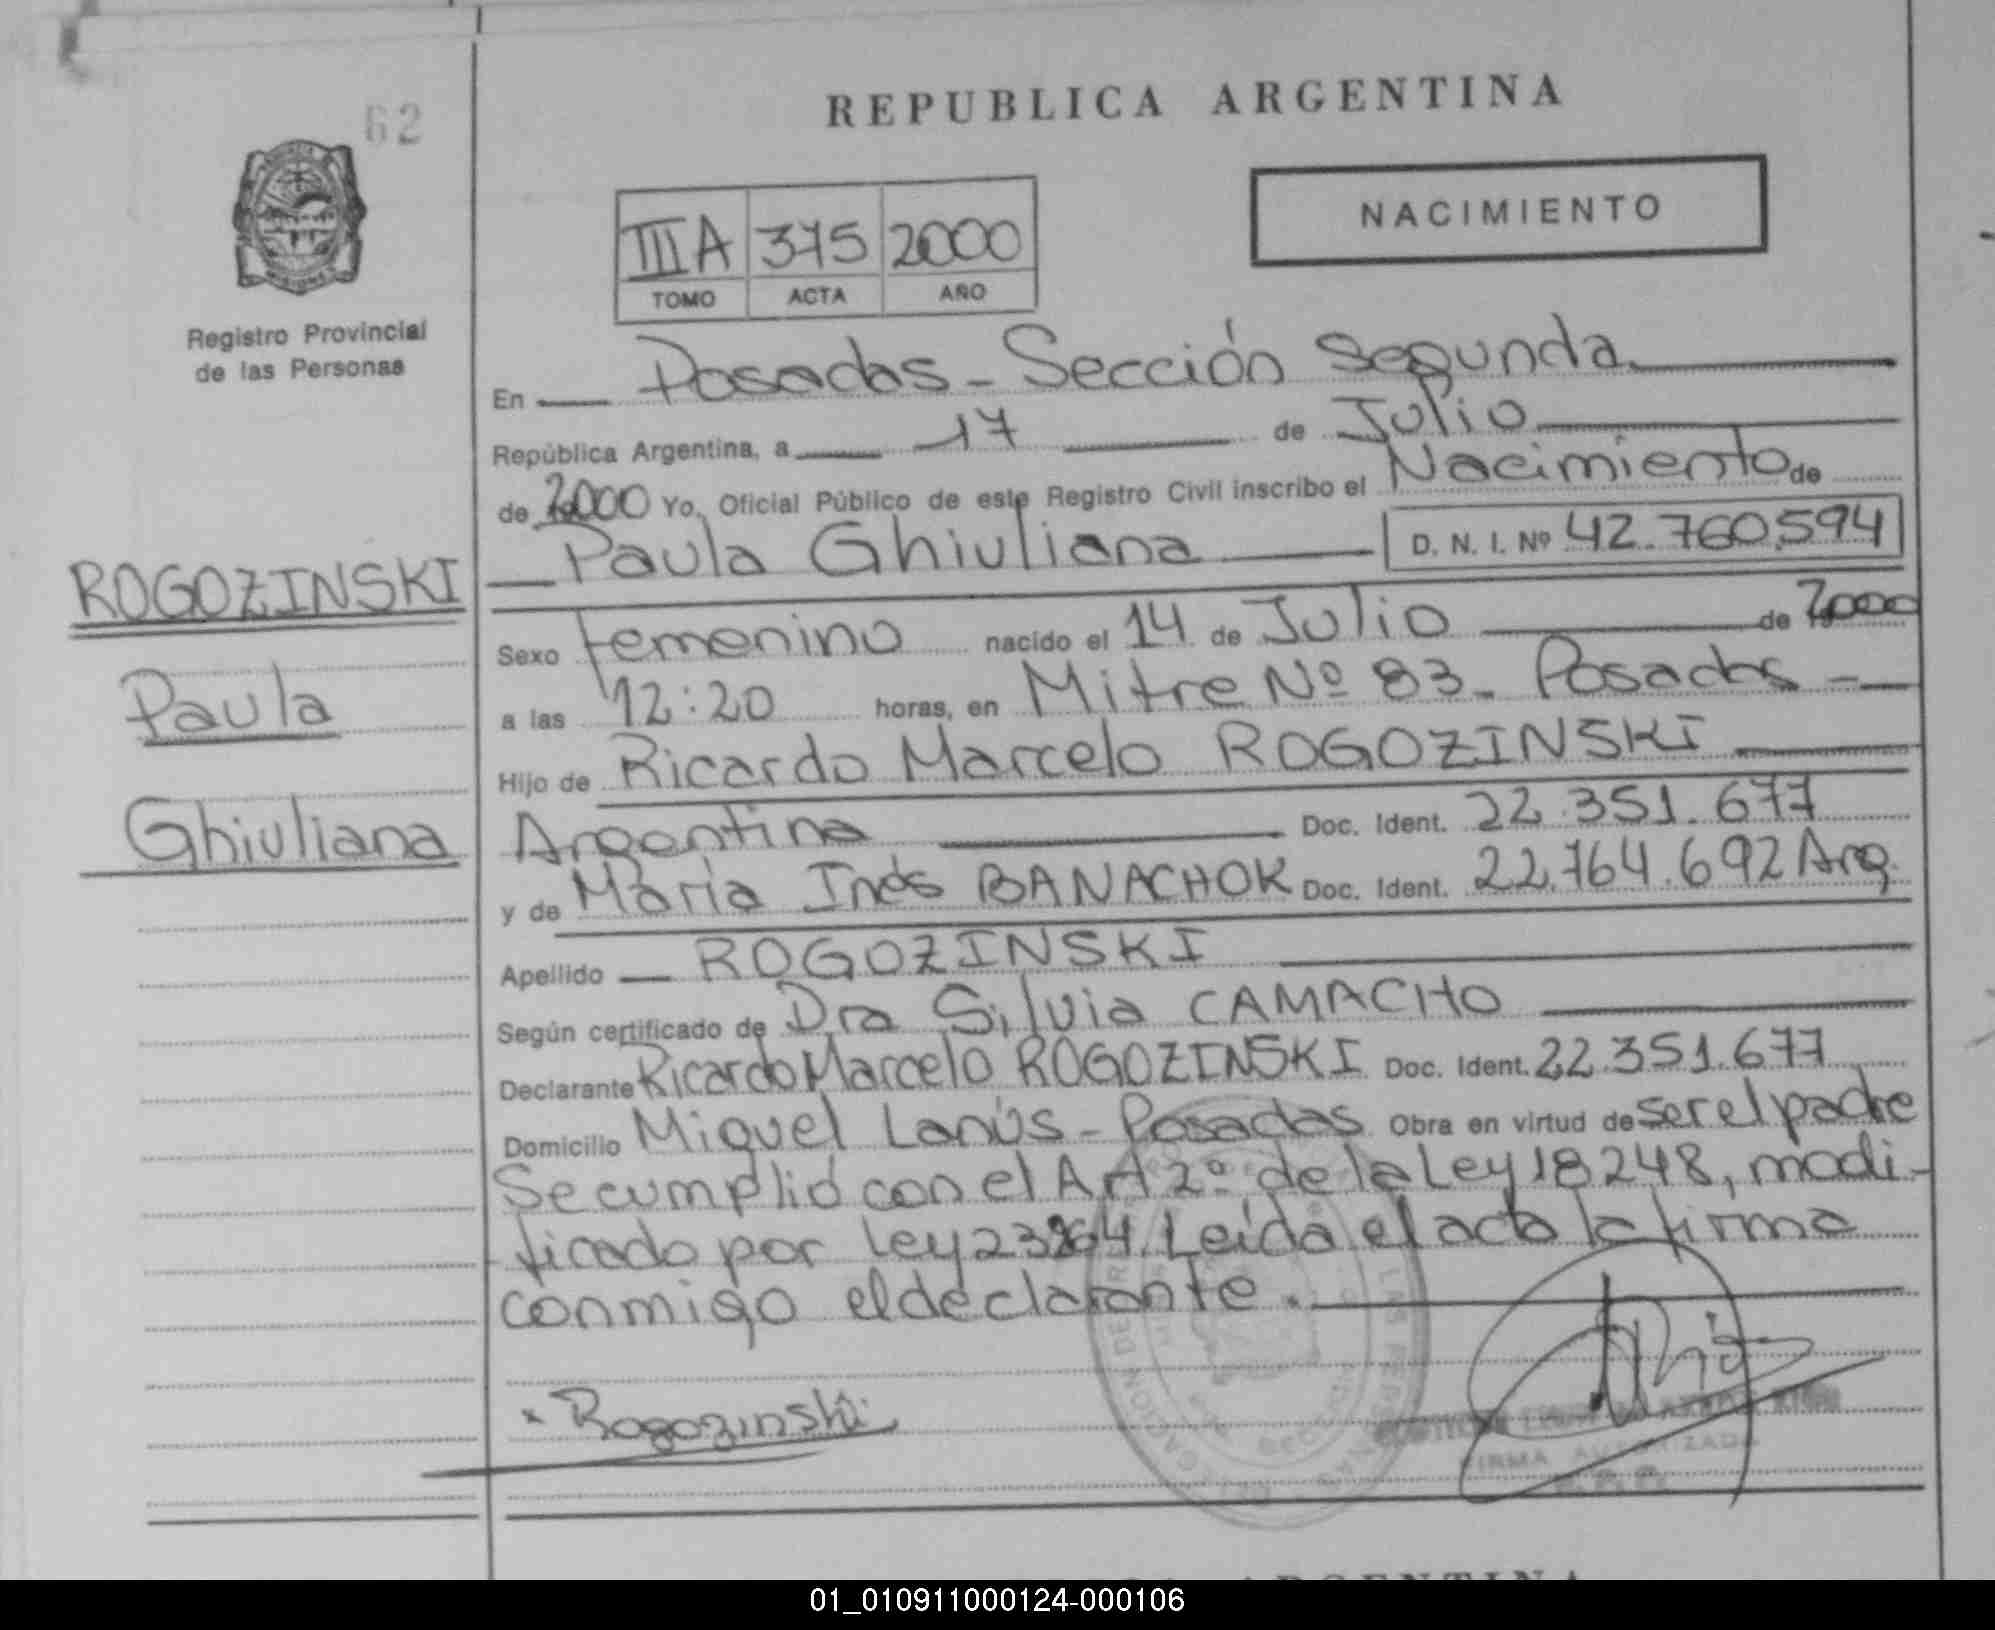 62
REPUBLICA ARGENTINA
NACIMIENTO
IIIA 375 2000
TOMO ACTA AÑO
Registro Provincial
de las Personas
En Posadas - Sección Segunda
República Argentina, a 17 de Julio
de 2000 Yo, Oficial Público de este Registro Civil inscribo el Nacimiento de
Paula Ghiuliana D. N. I. Nº 42.760.594
ROGOZINSKI
Paula
Ghiuliana
Sexo femenino nacido el 14 de Julio de 2000
a las 12:20 horas, en Mitre Nº 83 - Posadas -
Hijo de Ricardo Marcelo ROGOZINSKI
Argentina Doc. Ident. 22.351.677
y de María Inés BANACHOK Doc. Ident. 22.764.692 Arg.
Apellido ROGOZINSKI
Según certificado de Dra Silvia CAMACHO
Declarante Ricardo Marcelo ROGOZINSKI Doc. Ident. 22.351.677
Domicilio Miguel Lanús - Posadas Obra en virtud de ser el padre
Se cumplió con el Art 2º de la Ley 18248, modi-
ficado por Ley 23264. Leída el acta la firma
conmigo el declarante.
Rogozinski
FIRMA AUTORIZADA
ARGENTINA
01_010911000124-000106